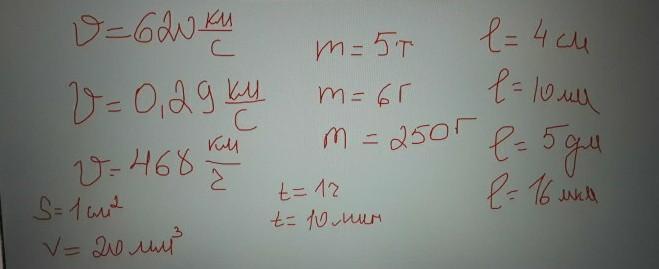 υ=620 км/с
υ=0,29 км/с
υ=468 км/г
S=1 см²
V=20 мм³
m=5т
m=6г
m=250г
t=1г
t=10мин
ℓ=4см
ℓ=10мм
ℓ=5дм
ℓ=16мкм